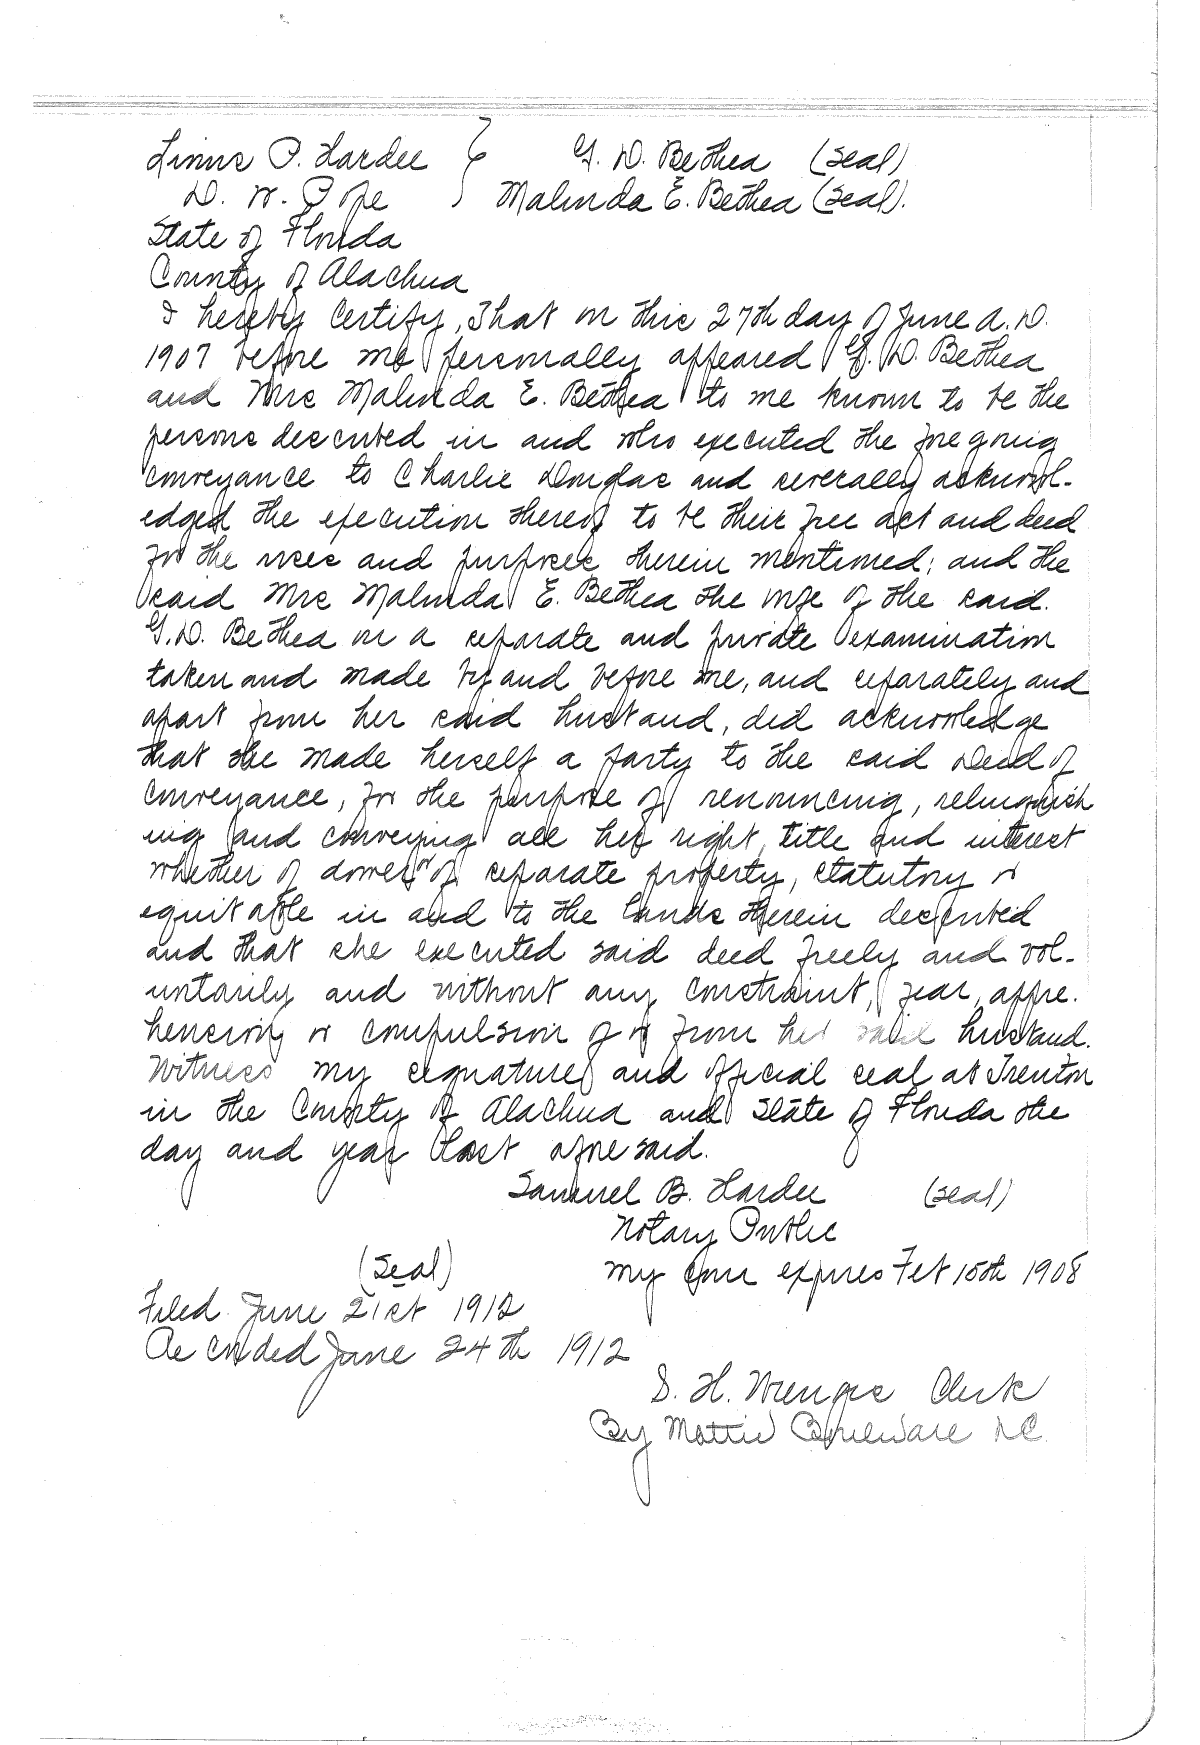 Linus P. Hardee } G. D. Bethea (Seal)
D. W. Pope } Malinda E. Bethea (Seal).
State of Florida
County of Alachua
I hereby Certify, That on this 27th day of June A.D.
1907 before me personally appeared G. D. Bethea
and Mrs Malinda E. Bethea to me known to be the
persons described in and who executed the foregoing
conveyance to Charlie Douglas and severally acknowl-
edged the execution thereof to be their free act and deed
for the uses and purposes therein mentioned; and the
said Mrs Malinda E. Bethea the wife of the said.
G. D. Bethea on a separate and private examination
taken and made by and before me, and separately and
apart from her said husband, did acknowledge
that she made herself a party to the said Deed of
Conveyance, for the purpose of renouncing, relinquish
ing and conveying all her right, title and interest
whether of dower or of separate property, statutory or
equitable in and to the lands therein described
and that she executed said deed freely and vol-
untarily and without any constraint, fear, appre-
hension or compulsion of or from her said husband.
Witness my signature and official seal at Trenton
in the County of Alachua and State of Florida the
day and year last aforesaid.
Samuel B. Hardee (seal)
Notary Public
(Seal) my com expires Feb 15th 1908
Filed June 21st 1912
Recorded June 24th 1912
S. H. Wienges Clerk
By Mattie Boulware D.C.